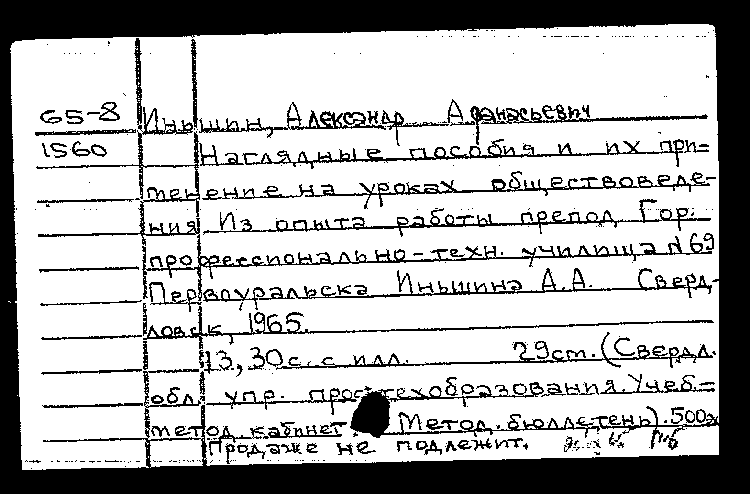 65-8 Иньшин, Александр Афанасьевич
1560 Наглядные пособия и их при-
менение на уроках обществоведе-
ния Из опыта работы препод Гор.
профессионально-техн. училища N 69
Первоуральска Иньшина А.А. Сверд-
ловск, 1965.
13, 30с. с илл. 29см. (Свердл.
обл. упр. профтехобразования. Учеб-
метод. кабинет. Метод. бюллетень). 500э
Продаже не подлежит.